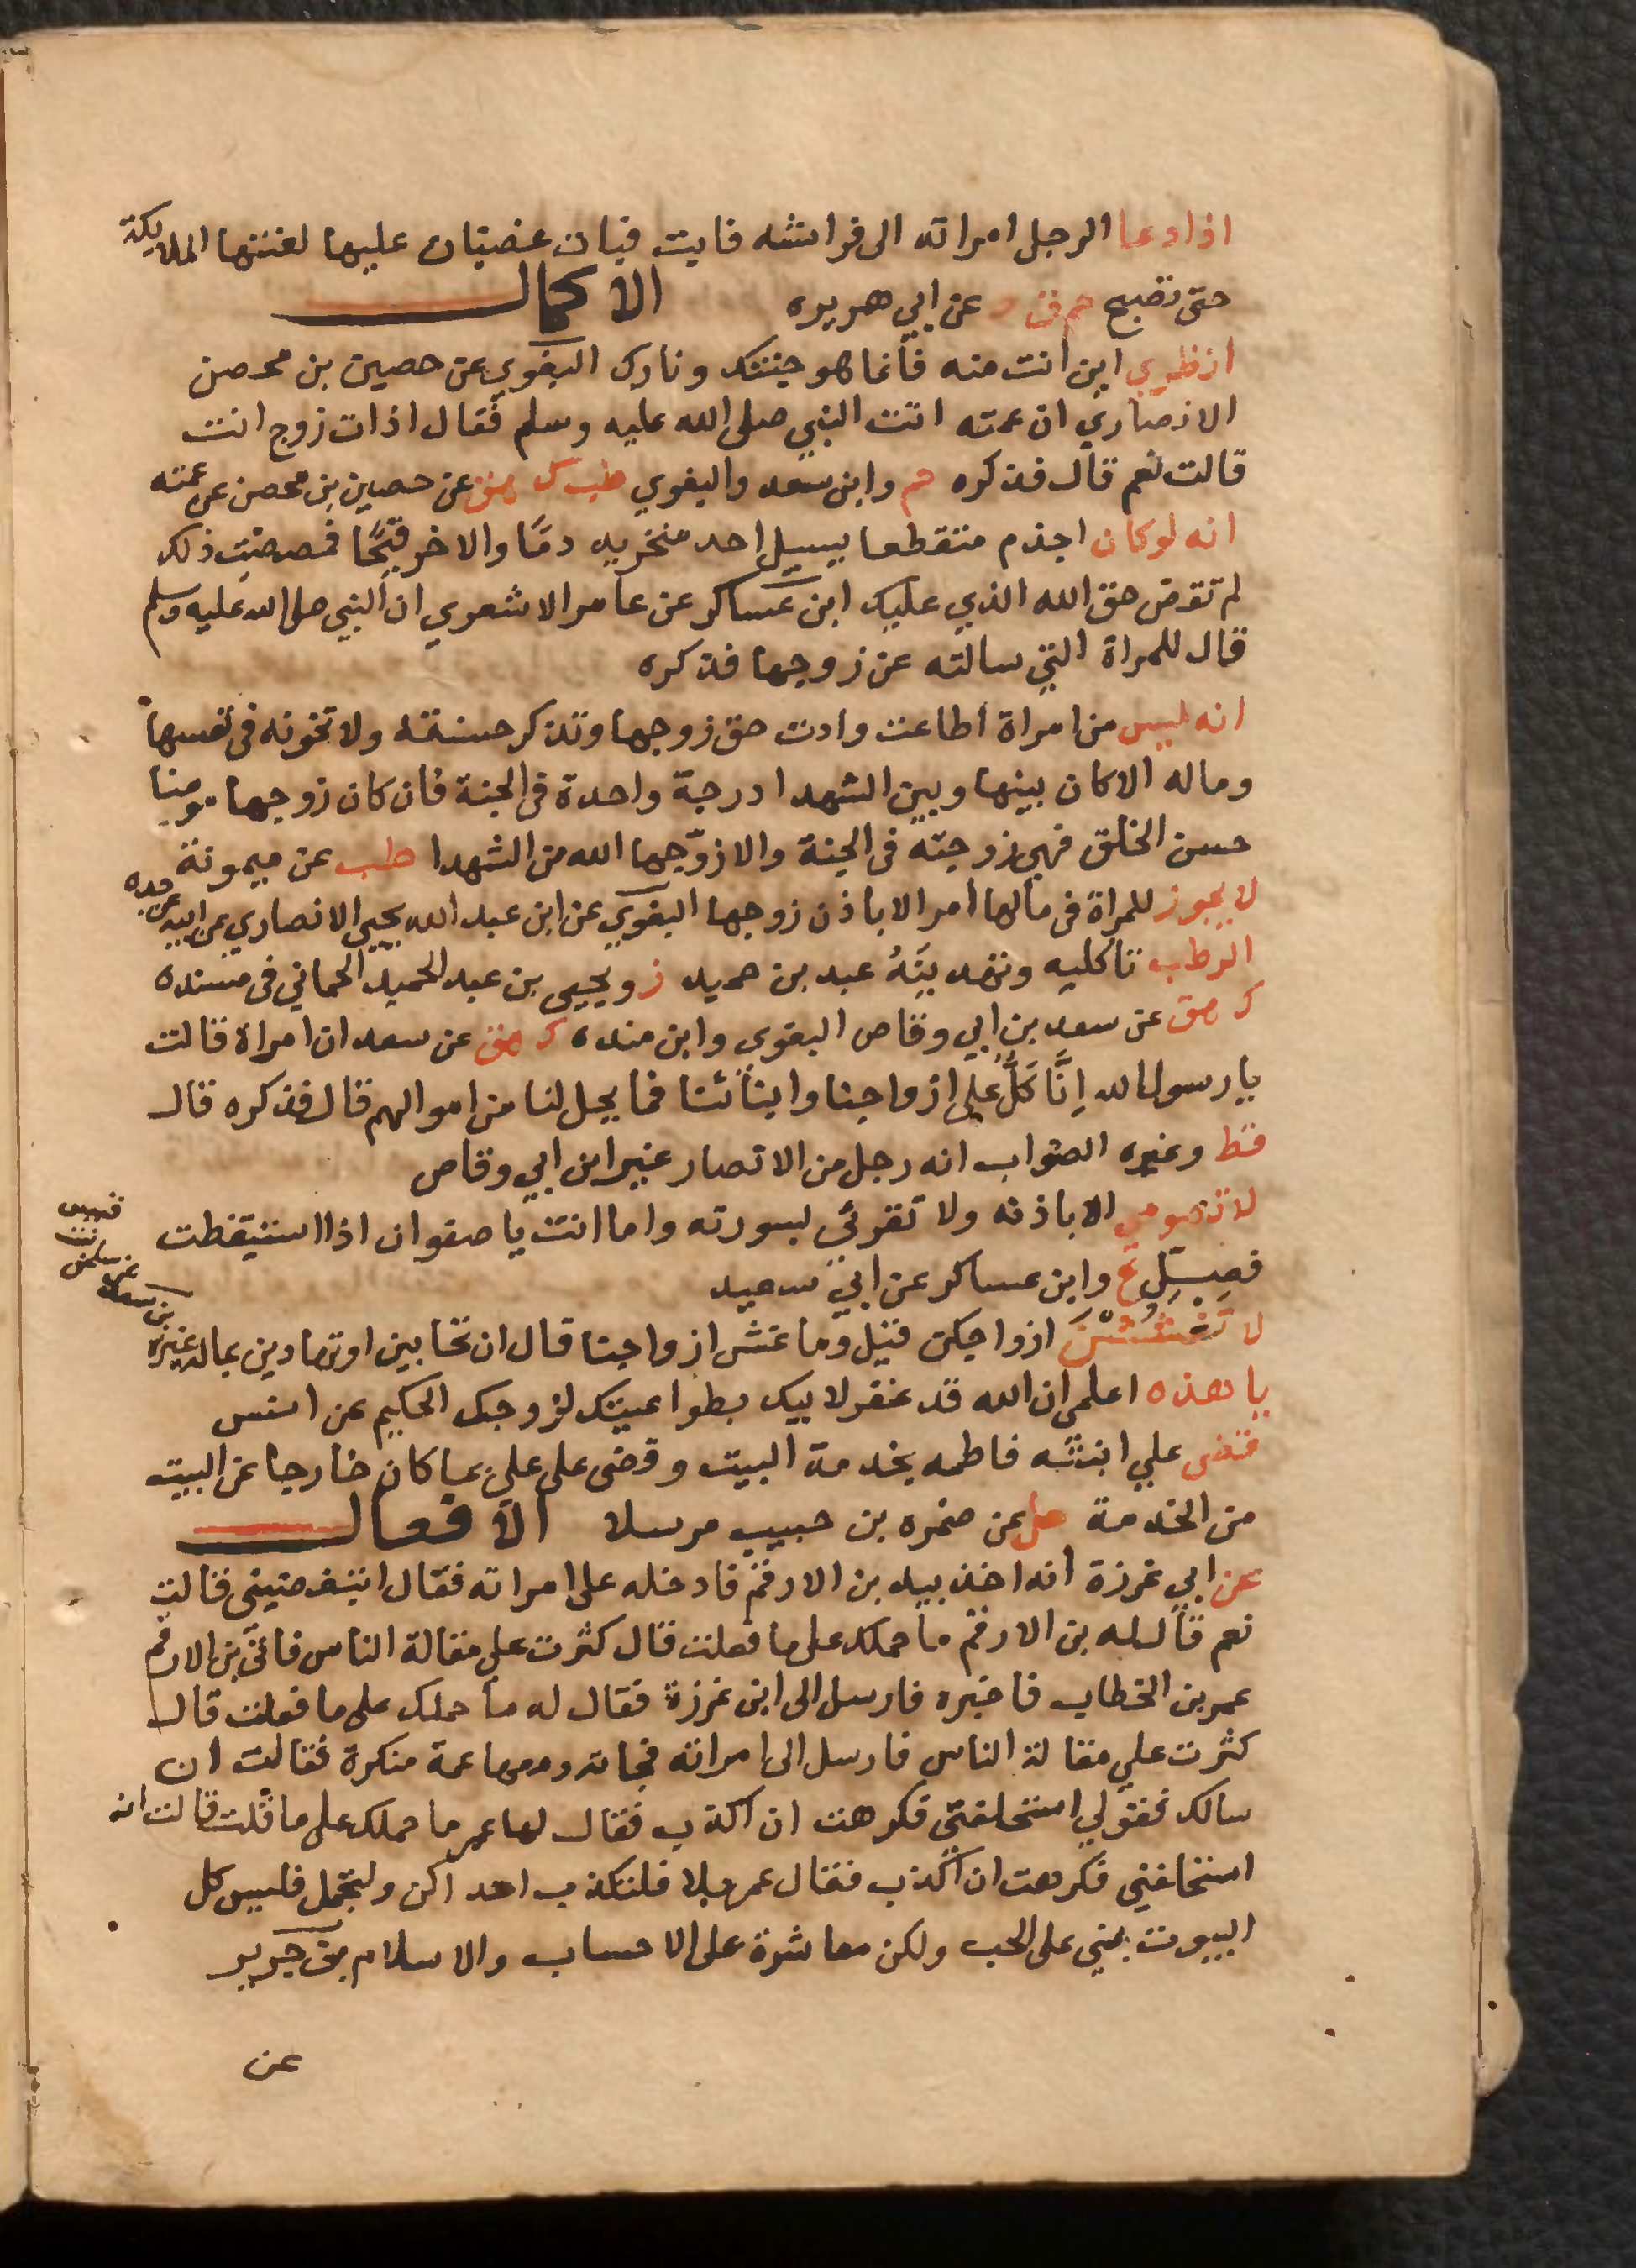 اذا دعا الرجل امراته الى فراشه فابت فبات غضبان عليها لعنتها الملايكة
حتى تصبح حم ق د عن ابي هريره الاكمال
انظري اين انت منه فانما هو جنتك ونارك البغوي عن حصين بن محصن
الانصاري ان عمته اتت النبي صلى الله عليه وسلم فقال اذات زوج انت
قالت نعم قال فذكره حم وابن سعد والبغوي طب ك هق عن حصين بن محصن عن عمته
انه لو كان اجذم متقطعا يسيل احد منخريه دمًا والاخر قيحًا فمصصتِ ذلك
لم تقوض حق الله الذي عليك ابن عساكر عن عامر الاشعري ان النبي صلى الله عليه وسلم
قال للمراة التي سالته عن زوجها فذكره
انه ليس من امراة اطاعت وادت حق زوجها وتذكر حسنته ولا تخونه في نفسها
وماله الا كان بينها وبين الشهدا درجة واحدة في الجنة فان كان زوجها مومنا
حسن الخلق فهي زوجته في الجنة والا زوّجها الله من الشهدا طب عن ميمونة
لا يجوز للمراة في مالها امر الا باذن زوجها البغوي عن ابن عبد الله يحيى الانصاري عن ابيه عن جده
الرطب تاكليه وتهديَنَهُ عبد بن حميد ز ويحيى بن عبد الحميد الحماني في مسنده
ك هق عن سعد بن ابي وقاص البغوي وابن منده ك هق عن سعد ان امراة قالت
يا رسول الله اِنَّا كَلٌّ على ازواجنا وابنائنا فما يحل لنا من اموالهم قال فذكره قال
قط وغيره الصواب انه رجل من الانصار غير ابن ابي وقاص
لا تصومي الا باذنه ولا تقرئي بسورته واما انت يا صفوان اذا استيقظت
فصلِّ ع وابن عساكر عن ابي سعيد
لا تَغْشُشْنَ ازواجكن قيل وما غش ازواجنا قال ان تحابين او تهادين بماله غيره
يا هذه اعلمي ان الله قد غفر لابيك بطواعيتك لزوجك الحكيم عن انس
قضى علي ابنته فاطمه بخدمة البيت وقضى على علي بما كان خارجا عن البيت
من الخدمة حل عن ضمره بن حبيب مرسلا الافعال
عن ابي غرزة انه اخذ بيد بن الارقم فادخله على امراته فقال اتبغضيني قالت
نعم قال له بن الارقم ما حملك على ما فعلت قال كثرت علي مقالة الناس فاتى بن الارقم
عمر بن الخطاب فاخبره فارسل الى ابن غرزة فقال له ما حملك على ما فعلت قال
كثرت علي مقالة الناس فارسل الى امراته فجاته ومعها عمة منكرة فقالت ان
سالك فقولي استحلفني فكرهت ان اكذب فقال لها عمر ما حملك على ما قلت قالت انه
استحلفني فكرهت ان اكذب فقال عمر بلا فلتكذب احداكن ولتجمل فليس كل
البيوت يبنى على الحب ولكن معاشرة على الاحساب والاسلام بن جرير
عن